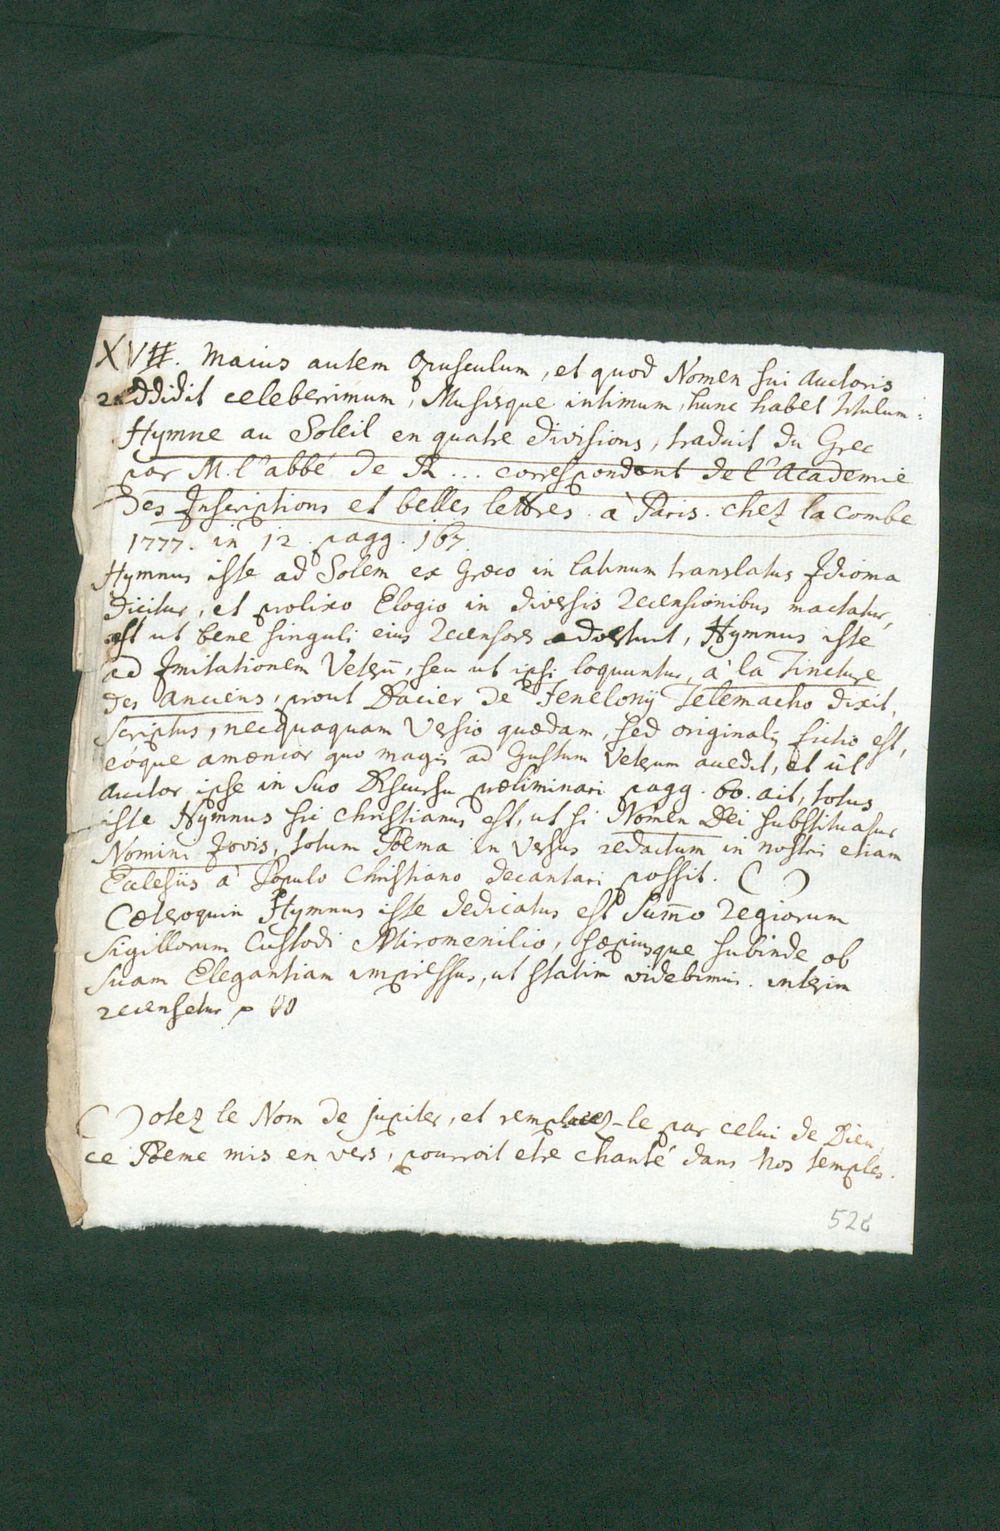 XVII. Maius autem Opusculum, et quod Nomen sui Auctoris
reddidit celeberrimum, Musisque intimum, hunc habet titulum:
Hymne au Soleil en quatre divisions, traduit du Grec
par M. l'abbé de R... correspondent de l'Academie
des Inscriptions et belles lettres. à Paris. chez la Combe
1777. in 12. pagg. 167.
Hymnus iste ad Solem ex Græco in latinum translatus Idioma
dicitur, et prolixo Elogio in diversis recensionibus mactatur,
ast ut bene singuli eius recensores advertunt, Hymnus iste
ad Imitationem Veterū, seu ut ipsi loquuntur, à la Tincture
des anciens, prout Dacier de Fenelonij Telemacho dixit,
scriptus, necquaquam Versio quædam, sed originalis fictio est,
eóque amœnior quo magis ad Gustum Veterum accedit, et ut
auctor ipse in suo Discursu præliminari pagg. 60. ait, totus
iste Hymnus sic christianus est, ut si Nomen Dei substituatur
Nomini Jovis, totum Poëma in Versus redactum in nostri etiam
Ecclesiis à Populo Christiano decantari possit. ( )
Cæteroquin Hymnus iste dedicatus est Sum̄o regiorum
sigillorum Custodi Miromenilio, sæpiusque subinde ob
suam Elegantiam impressus, ut statim videbimus. interim
recensetur
( ) otez le Nom de jupiter, et remplacez-le par celui de Dieu,
ce Poeme mis en vers, pourroit etre chanté dans nos temples.